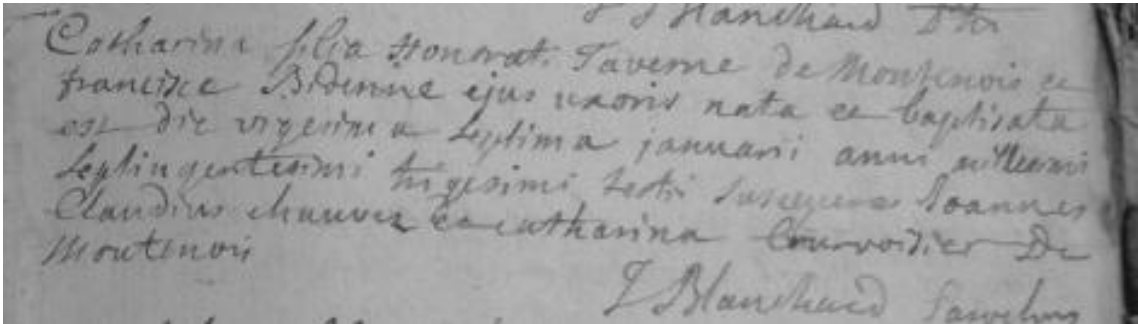 J Blanchard
Catharina filia Honorat. Taverne de Montenois et
francisce Bidenine ejus uxoris nata et baptisata
est die vigesima septima januarii anni millesimi
septingentesimi trigesimi sexti susceperunt Joannes
Claudius chauvez et catharina Courvoisier De
Montenois
J Blanchard